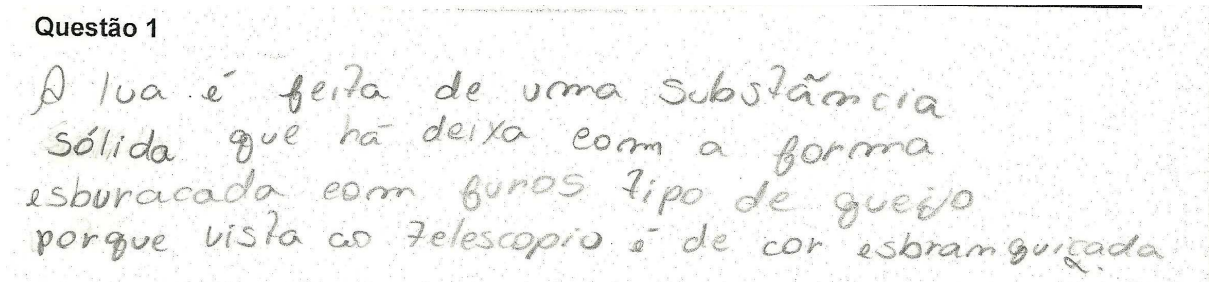 Questão 1
A lua é feita de uma substãncia
sólida que há deixa com a forma
esburacada com furos tipo de queijo
porque vista ao telescopio é de cor esbranquiçada